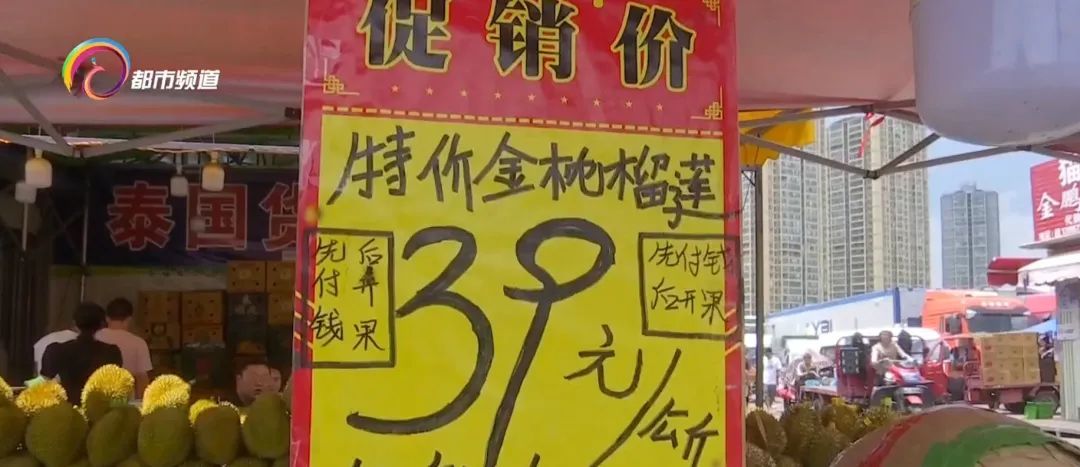 都市频道
促销价
特价金桃榴莲
先付钱
后弄果
39元/公斤
先付钱
后开果
泰国货
猫
金鹏
YBI